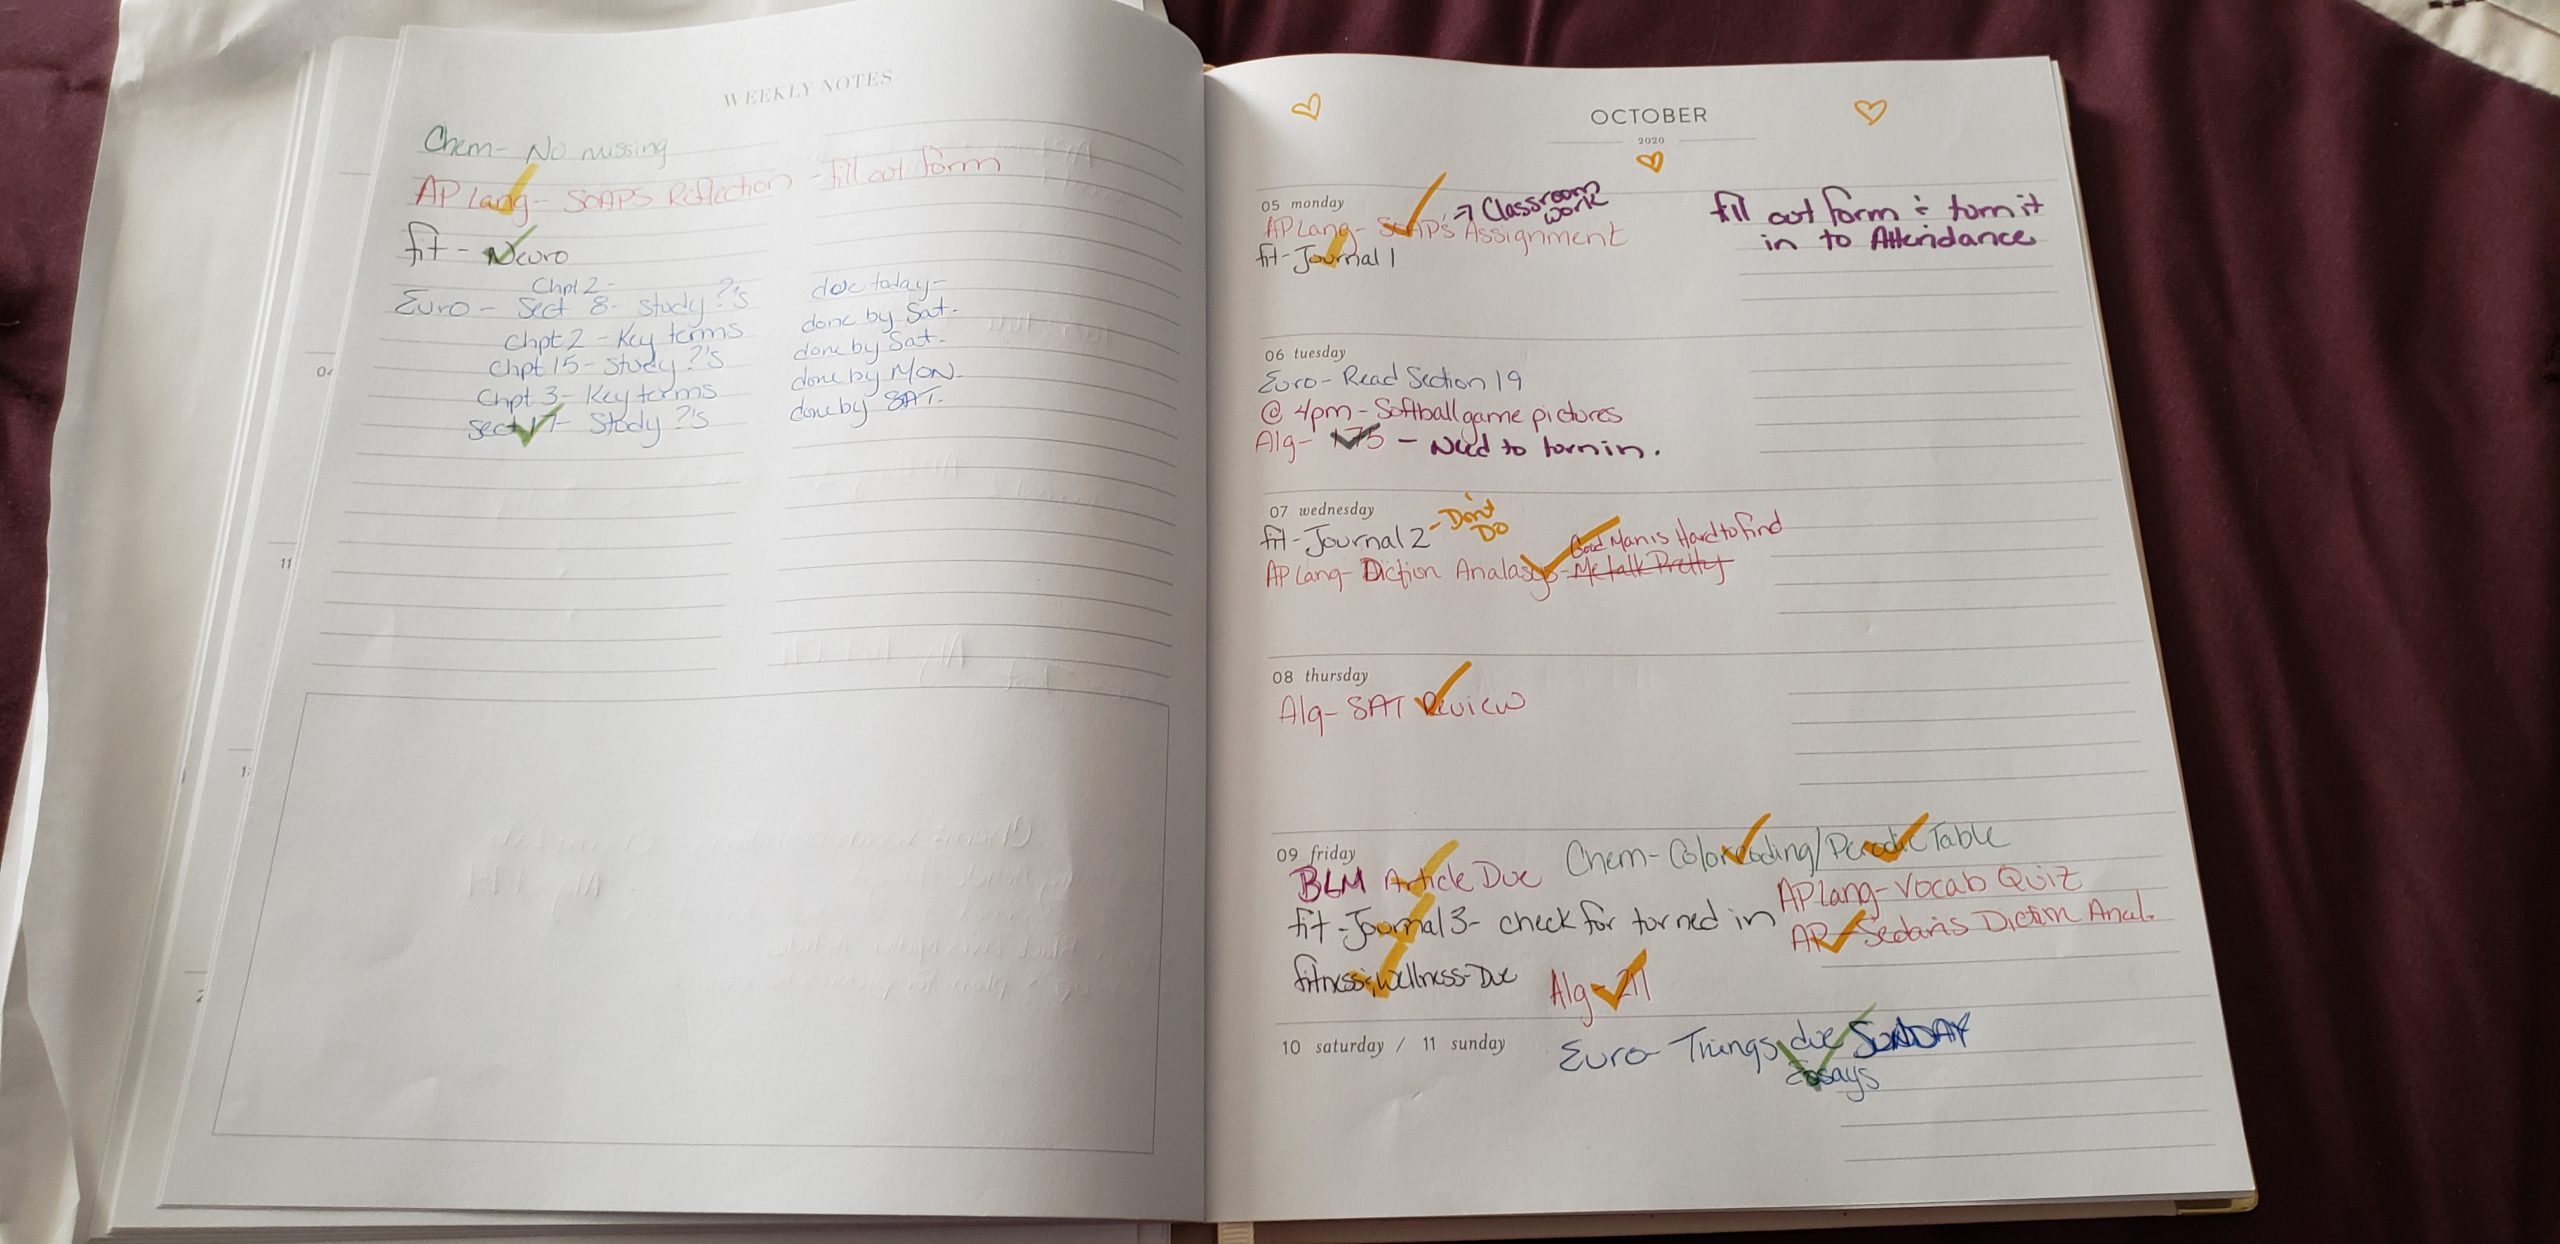 WEEKLY NOTES
Chem- No missing
AP Lang- SOAPS Reflection - fill out form
fit - Neuro
Chpt 2-
Euro - Sect 8- Study ?'s
due today-
Chpt 2 - Key terms
done by Sat.
Chpt 15- Study ?'s
done by Sat.
Chpt 3- Key terms
done by MON.
Sect 17- Study ?'s
done by SAT.
OCTOBER
2020
05 monday
→ Classroom
work
AP Lang- SOAPS Assignment
fit- Journal 1
fill out form & turn it
in to Attendance
06 tuesday
Euro- Read Section 19
@ 4pm- Softball game pictures
Alg- 175 - Need to turn in.
07 wednesday
fit- Journal 2 - Don't
Do
Good Man is Hard to find
AP Lang- Diction Analasys- Me talk Pretty
08 thursday
Alg- SAT Review
09 friday
Chem- Colorcoding/Perodic Table
BLM Article Due
AP Lang- Vocab Quiz
fit - Journal 3- check for turned in
AP- Sedaris Diction Anal.
fitness & Wellness- Due
Alg- 211
10 saturday / 11 sunday
Euro- Things due SUNDAY
Essays